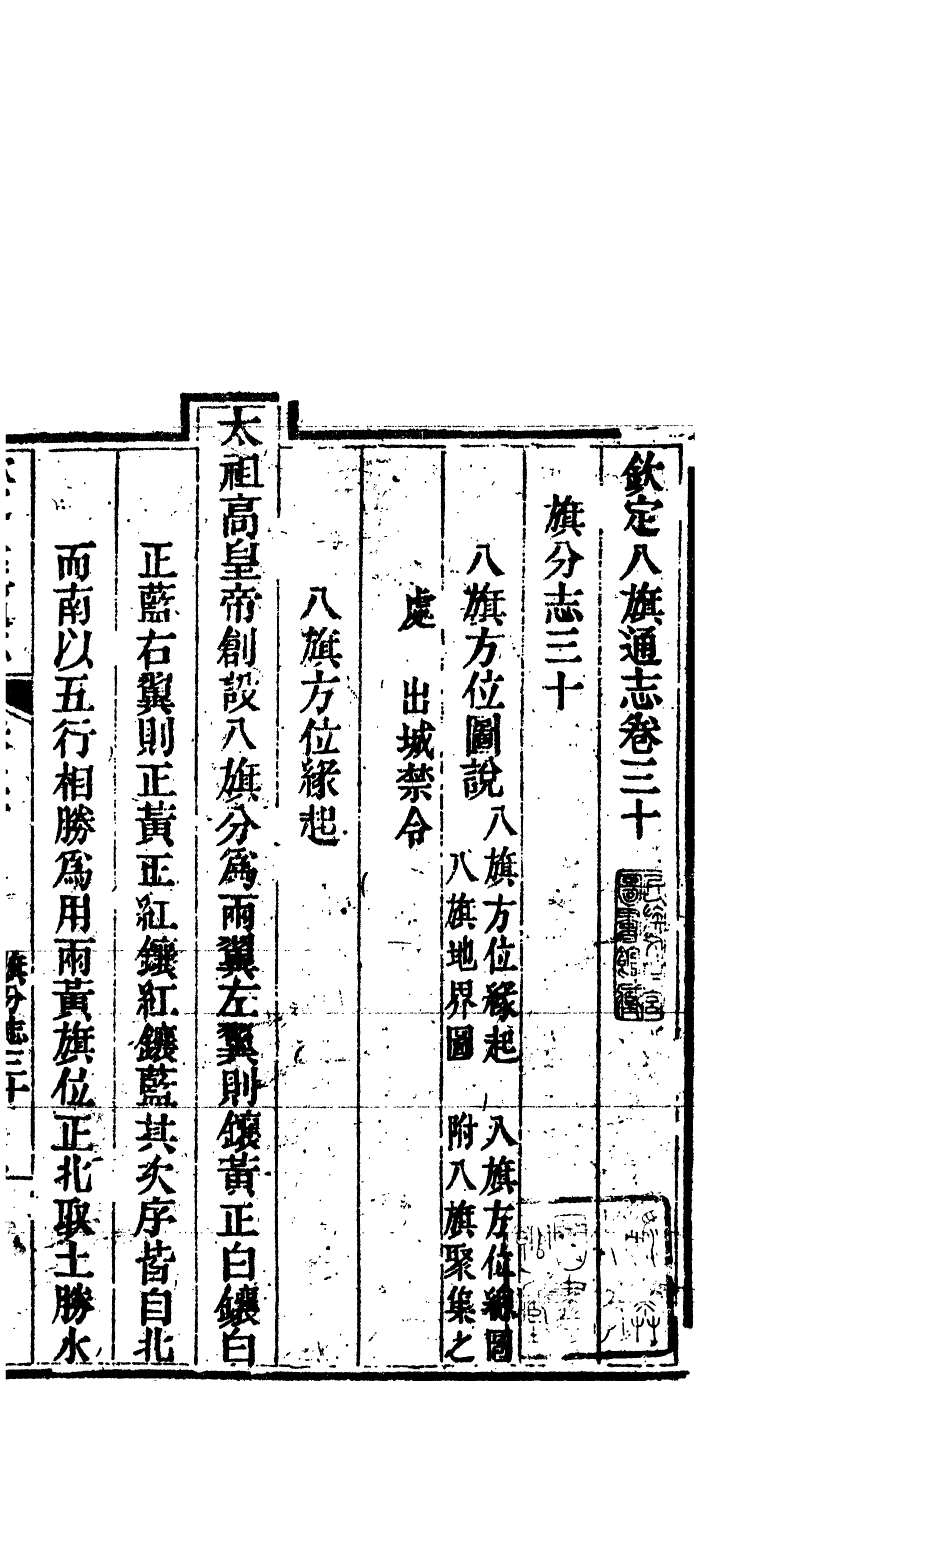 欽定八旗通志卷三十
旗分志三十
八旗方位圖說
八旗方位緣起　八旗方位總圖
八旗地界圖　附八旗聚集之
處　出城禁令
八旗方位緣起
太祖高皇帝創設八旗分爲兩翼左翼則鑲黃正白鑲白
正藍右翼則正黃正紅鑲紅鑲藍其次序皆自北
而南以五行相勝爲用兩黃旗位正北取土勝水
旗分志三十